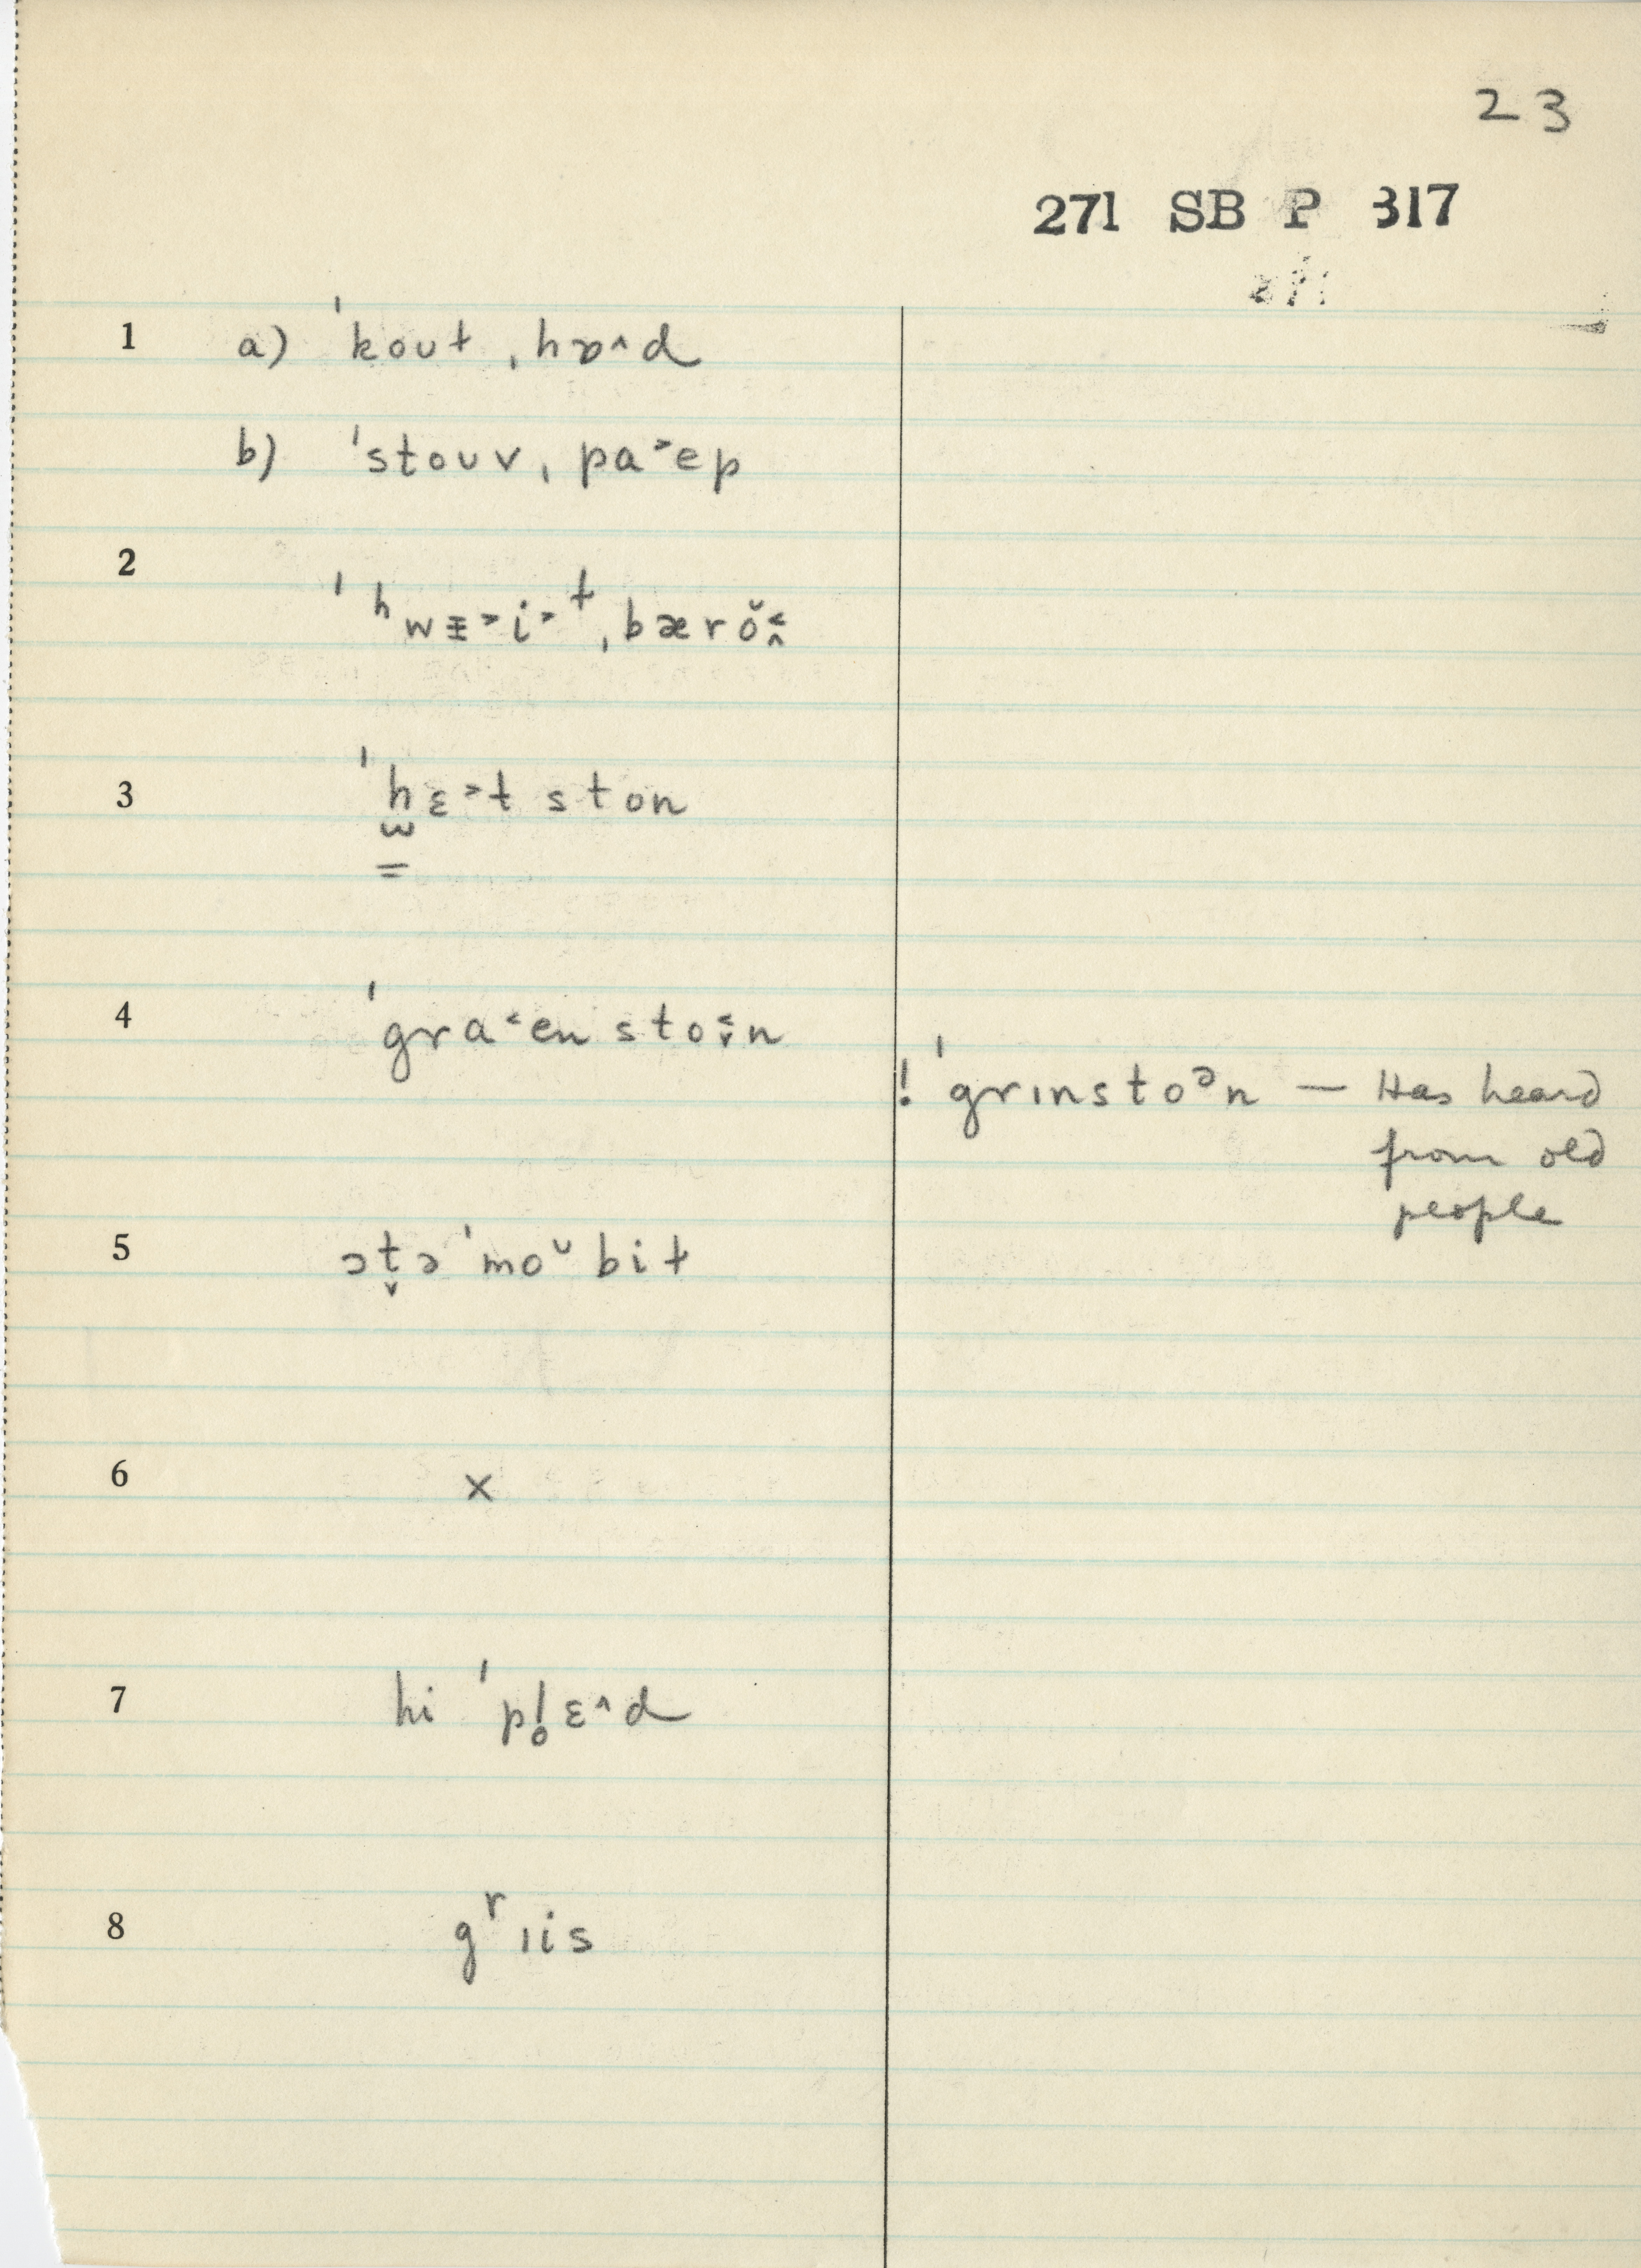 23
271 SB P 317
271
1 a) ˈkoʊɫ ˌhɒ˄d
b) ˈstoʊv ˌpa˃ep
2
ˈʰwɪ̵˃i˃ɫ ˌbærŏ˂̭
3 ˈhɛ˃t ston
4 ˈgra˂en sto˂̬n
! ˈgrɪnstoᵊn — Has heard
from old
people
5 ɔt̬ə ˈmoᵕbiɫ
6 ×
7 hi ˈpl̥ɛ˄d
8 gʳɪis